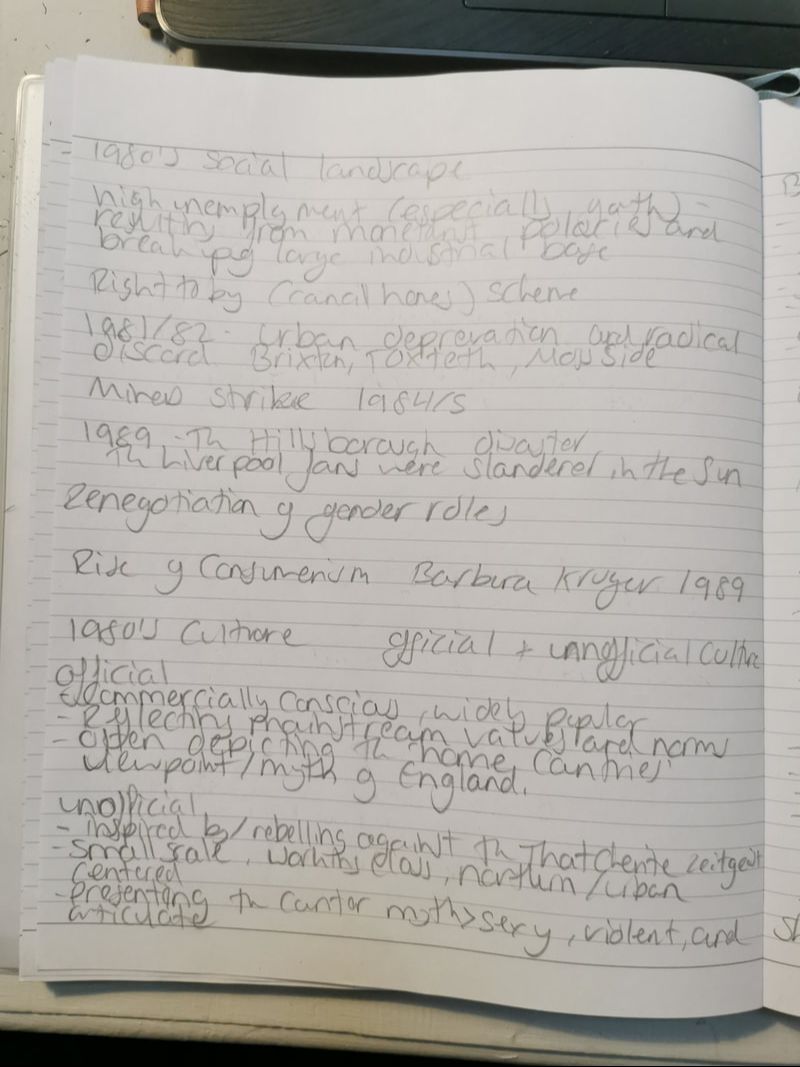 - 1980's social landscape
high unemplyment (especially youth) -
resulting from monetarist polocies and
break up of large industrial base
Right to by (Council homes) scheme
1981/82 - Urban deprevation and radical
discord Brixton, Toxteth, Moss Side
Miners strike 1984/5
1989 - The Hillsborough disaster
The Liverpool fans were slandered in the Sun
Renegotiation of gender roles
Rise of Consumerism Barbera Kruger 1989
1980's Culture official + unnofficial culture
official
- Commercially conscious, widely popular
- Reflecting mainstream values and norms
- often depicting the 'home counties'
viewpoint/myth of England.
unofficial
- inspired by/rebelling against the Thatcherite zeitgeist
- small scale, working class, northern/urban
centered
- presenting the counter myth > sexy, violent, and
articulate